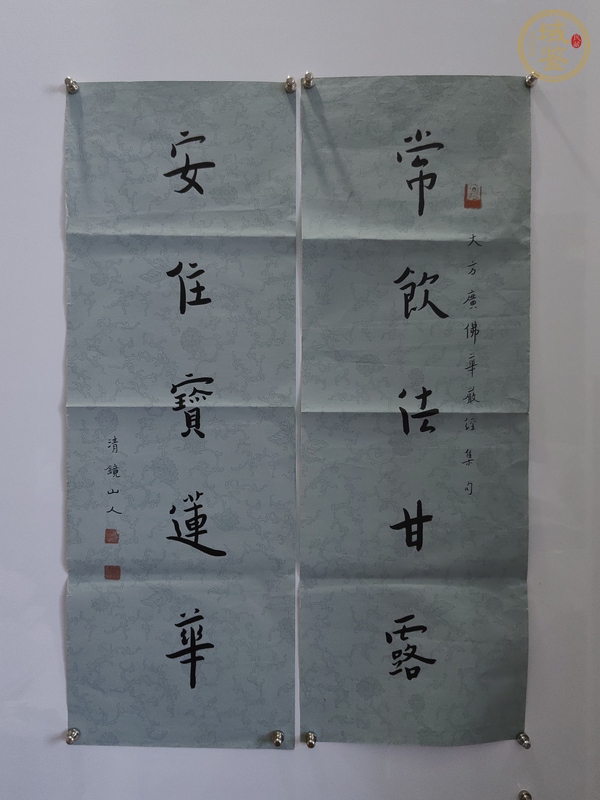 大方廣佛華嚴經集句
常飲法甘露
安住寶蓮華
清鏡山人